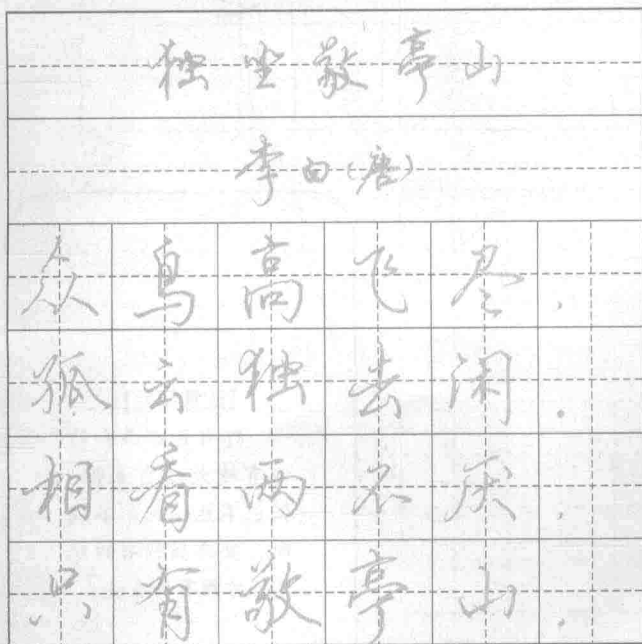 独坐敬亭山
李白(唐)
众鸟高飞尽.
孤云独去闲.
相看两不厌.
只有敬亭山.